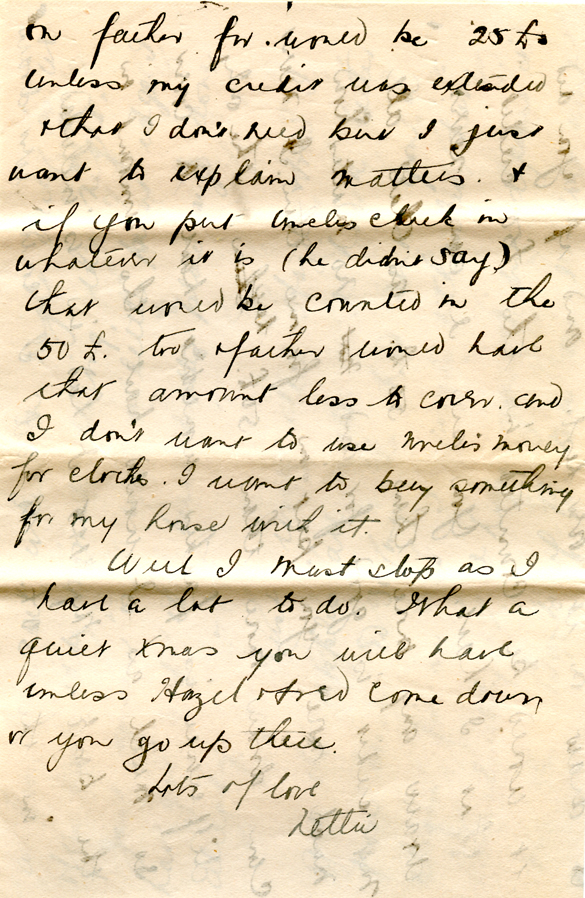 on father for. would be 25 £s
unless my credit was extended
& that I don't need but I just
want to explain matters. &
if you put Uncles check in
whatever it is (he didn't say)
that would be counted in the
50 £. too & father would have
that amount less to cover. and
I don't want to use Uncle's money
for clothes. I want to buy something
for my house with it.
Well I must stop as I
have a lot to do. What a
quiet Xmas you will have
unless Hazel & Fred come down
or you go up there.
Lots of love
Lettie